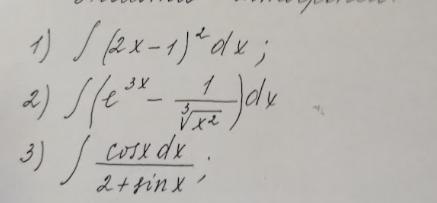 1) ∫(2x-1)² dx;
2) ∫(e^{3x} - 1/∛(x²))dx
3) ∫ cosx dx / (2+sinx);